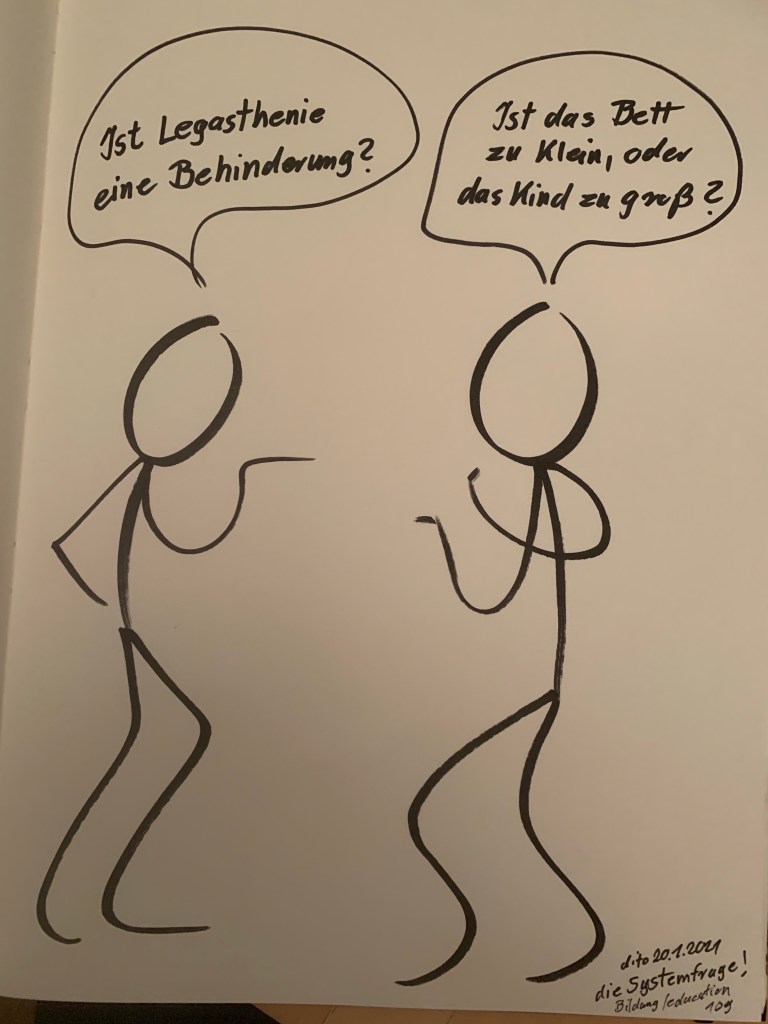 Ist Legasthenie
eine Behinderung?
Ist das Bett
zu Klein, oder
das Kind zu groß?
dito 20.1.2021
die Systemfrage!
Bildung/education
109